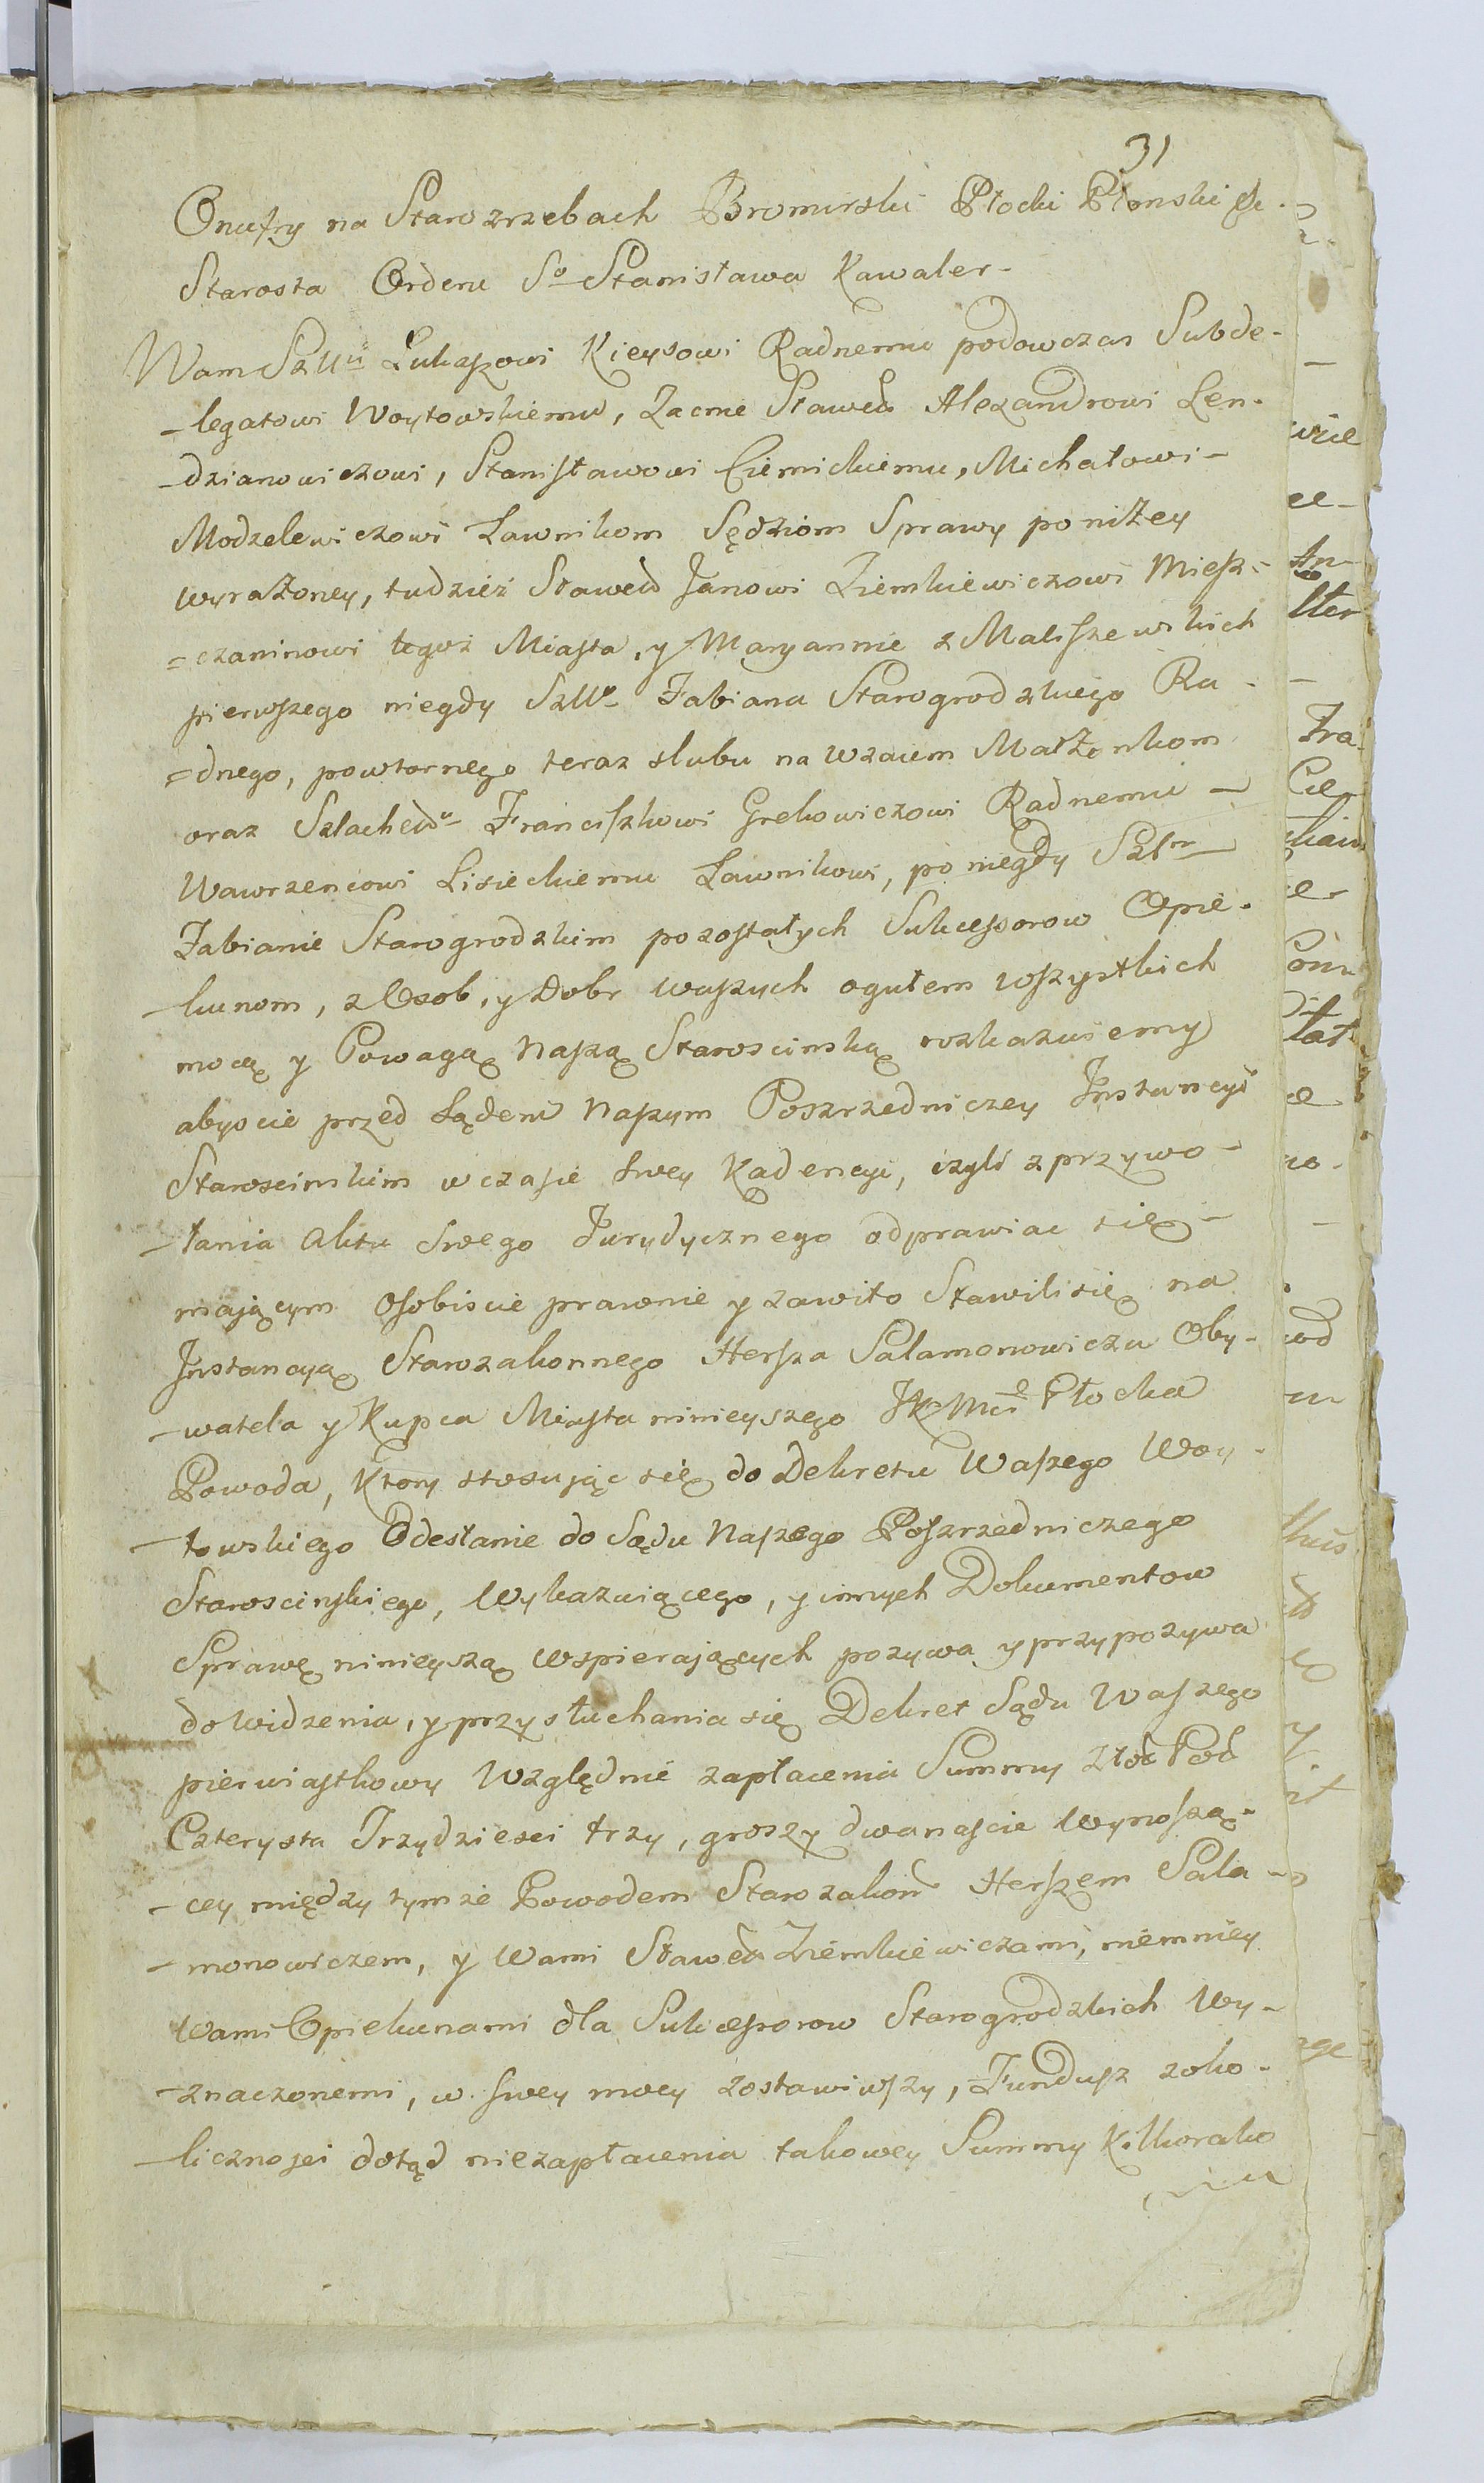 31
Onufry na Starozrzebach Bromirski Płocki Płonski &c
Starosta Orderu So Stanisława Kawaler-
Wam Szllu Łukaszowi Kieysowi Radnemu podowczas Subde-
-legatowi Woytowskiemu, Zacnie Sławed Alexandrowi Len-
-dzianowiczowi, Stanisławowi Ciemickiemu, Michałowi-
Modzelewiczowi Ławnikom Sędziom Sprawy poniżey
wyrażoney, tudzież Sławed Janowi Ziemkiewiczowi Miesz-
=czaninowi tegoż Miasta, y Maryannie z Maliszewskich
pierwszego niegdy Szllo Fabiana Starogrodzkiego Ra-
=dnego, powtornego teraz slubu na wzaiem Małżonkom
oraz Szlachedu Franciszkowi Grekowiczowi Radnemu -
Wawrzencowi Lisieckiemu Ławnikowi, po niegdy Szlm
Fabianie Starogrodzkim pozostałych Sukcessorow Opie-
-kunom, z Osob, y Dobr waszych ogułem wszystkich
mocą y Powagą Naszą Staroscinską rozkazuiemy
abyscie przed Sądem Naszym Poszrzedniczey Instancyi
Staroscinskim w czasie swey Kadencyi, czyli z przywo-
-łania Aktu swego Jurydycznego odprawiac się-
mającym osobiscie prawnie y zawito Stawili się na
Instancyą Starozakonnego Herszka Salamonowicza Oby-
-watela y Kupca Miasta ninieyszego JKMci Płocka
Powoda, Ktory stosując się do Dekretu Waszego Woy-
-towskiego Odesłanie do Sądu Naszego Poszrzedniczego
Staroscinskiego, Wykazuiącego, y innych Dokumentow
Sprawę ninieyszą wspierających pozywa y przypozywa
do widzenia, y przysłuchania się Dekret Sądu Waszego
pierwiastkowy Względnie zapłacenia Summy złot Pol
Czterysta Trzydziesci trzy, groszy dwanascie Wynoszą-
-cey między tymże Powodem Starozakon Herszem Sala-
-monowiczem, y Wami Sławed Ziemkiewiczami, niemniey
Wami Opiekunami dla Sukcessorow Starogrodzkich Wy-
-znaczonemi, w swey mocy zostawiwszy, Fundusz zoko-
-licznosci dotąd niezapłacenia takowey Summy Kilkorako